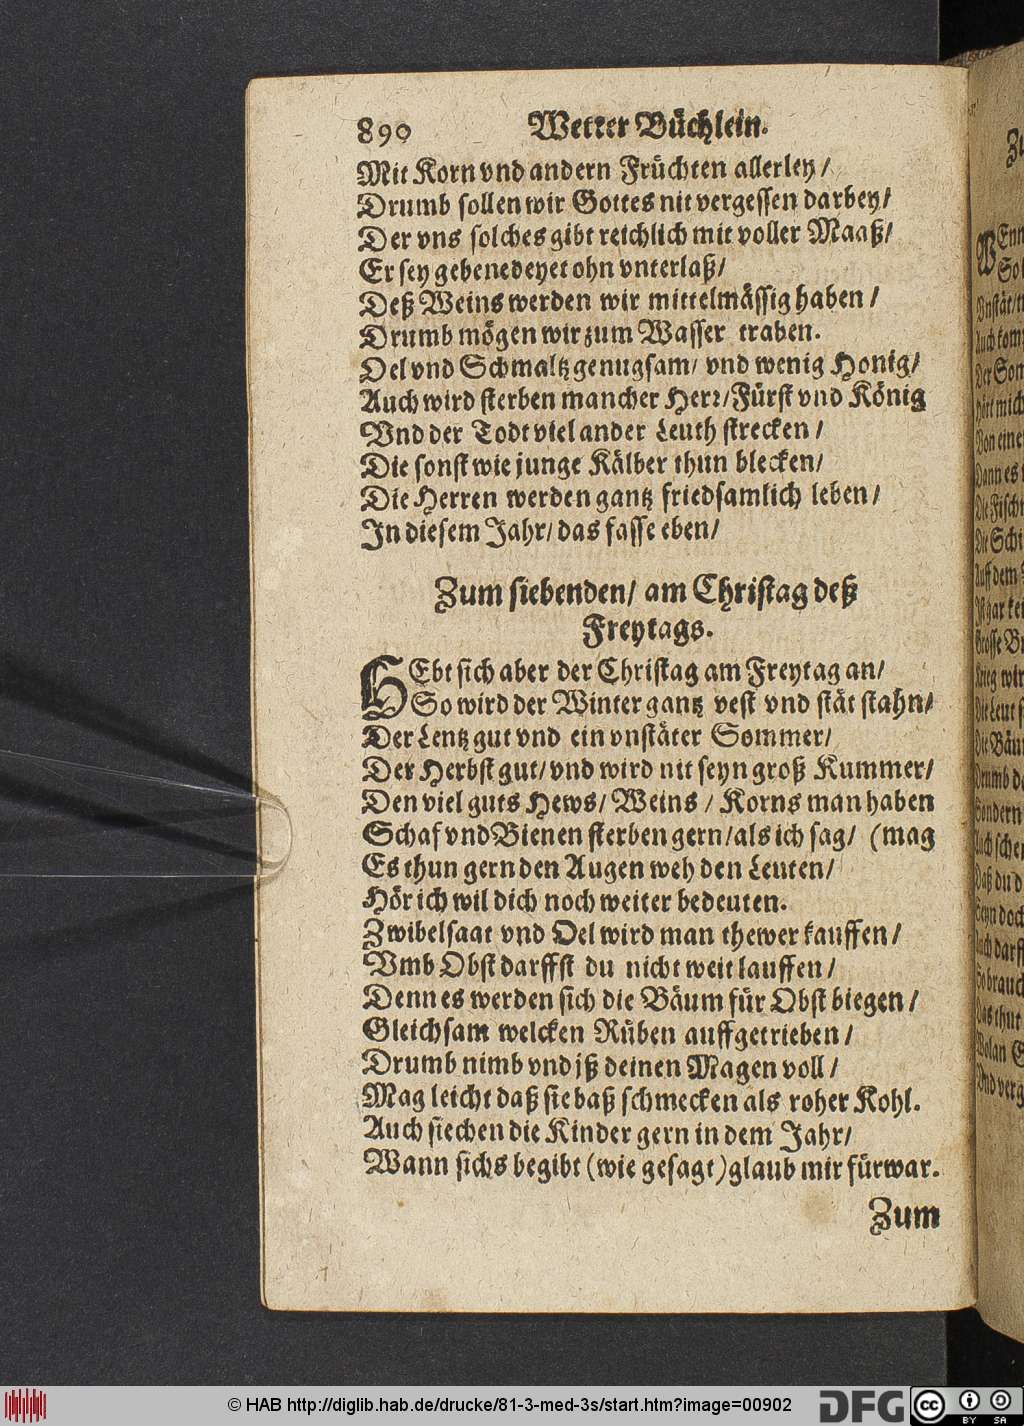 890 Wetter Büchlein.
Mit Korn vnd andern Früchten allerley /
Drumb sollen wir Gottes nit vergessen darbey /
Der vns solches gibt reichlich mit voller Maaß /
Er sey gebenedeyet ohn vnterlaß /
Deß Weins werden wir mittelmässig haben /
Drumb mögen wir zum Wasser traben.
Oel vnd Schmaltz genugsam / vnd wenig Honig /
Auch wird sterben mancher Herr / Fürst vnd König
Vnd der Todt viel ander Leuth strecken /
Die sonst wie junge Kälber thun blecken /
Die Herren werden gantz friedsamlich leben /
In diesem Jahr / das fasse eben /
Zum siebenden / am Christag deß
Freytags.
HEbt sich aber der Christag am Freytag an /
So wird der Winter gantz vest vnd stät stahn /
Der Lentz gut vnd ein vnstäter Sommer /
Der Herbst gut / vnd wird nit seyn groß Kummer /
Den viel guts Hews / Weins / Korns man haben
Schaf vnd Bienen sterben gern / als ich sag / (mag
Es thun gern den Augen weh den Leuten /
Hör ich wil dich noch weiter bedeuten.
Zwibelsaat vnd Oel wird man thewer kauffen /
Vmb Obst darffst du nicht weit lauffen /
Denn es werden sich die Bäum für Obst biegen /
Gleichsam welcken Rüben auffgetrieben /
Drumb nimb vnd iß deinen Magen voll /
Mag leicht daß sie baß schmecken als roher Kohl.
Auch siechen die Kinder gern in dem Jahr /
Wann sichs begibt (wie gesagt) glaub mir fürwar.
Zum
© HAB http://diglib.hab.de/drucke/81-3-med-3s/start.htm?image=00902
DFG
cc BY SA